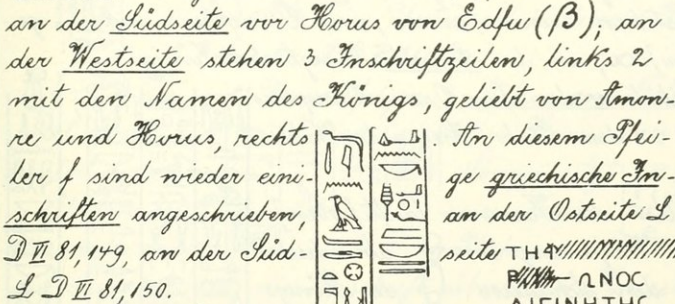 an der Südseite vor Horus von Edfu (β); an
der Westseite stehen 3 Inschriftzeilen, links 2
mit den Namen des Königs, geliebt von Amon-
re und Horus, rechts . An diesem Pfei-
ler f sind wieder eini- ge griechische In-
schriften angeschrieben, an der Ostseite L
D VI 81, 149, an der Süd- seite ΤΗ
L D VI 81, 150. ΩΝΟC